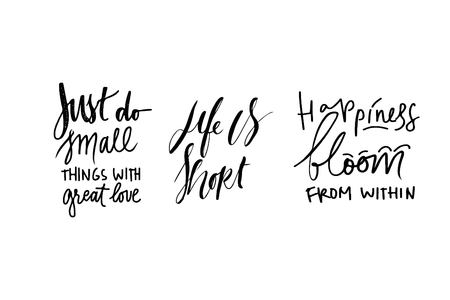 Just do
small
THINGS WITH
great love
Life is
short
Happiness
bloom
FROM WITHIN